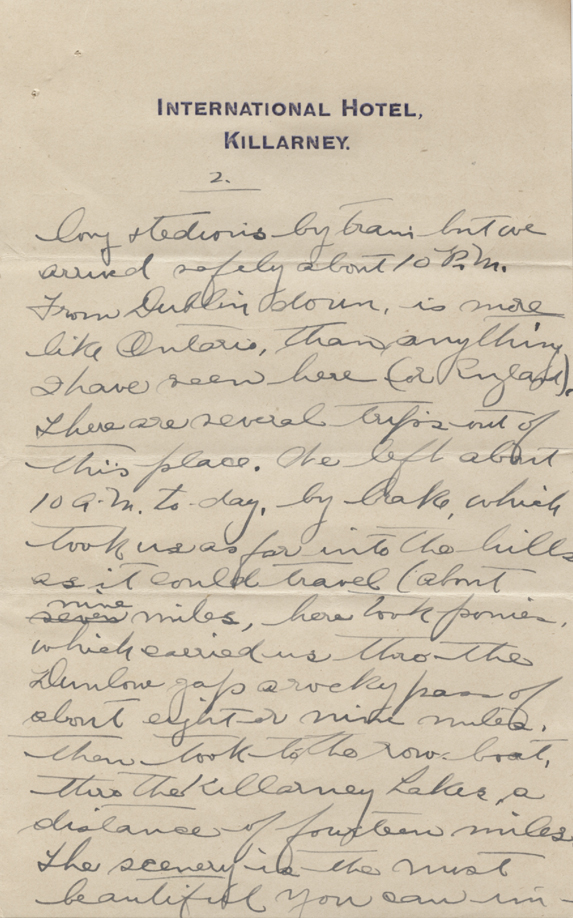 INTERNATIONAL HOTEL,
KILLARNEY.
2.
long & tedious by train but we
arrived safely about 10 P.M.
From Dublin down, is more
like Ontario, than anything
I have seen here (or England).
There are several trips out of
this place. We left about
10 a.m. to-day, by brake, which
took us as far into the hills
as it could travel (about
nine
seven miles, here took ponies,
which carried us thro the
Dunlow gap a rocky pass of
about eight or nine miles,
then took to the row-boat,
thro the Killarney Lakes, a
distance of fourteen miles
The scenery is the most
beautiful you can im-